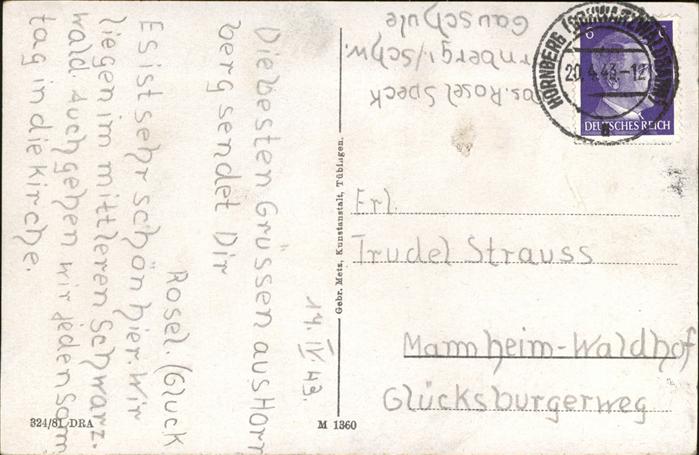 Abs. Rosel Speck
Hornberg i/schw.
Gauschule
HORNBERG (SCHWARZWALDBAHN)
20.4.43.-12
a
6
DEUTSCHES REICH
14. IV 43.
Die besten Grüssen aus Horn
berg sendet Dir
Rosel. (Gluck
Es ist sehr schön hier. Wir
liegen im mittleren Schwarz-
wald. Auch gehen wir jeden Sonn
tag in die Kirche.
Gebr. Metz, Kunstanstalt, Tübingen.
Frl.
Trudel Strauss
Mannheim-Waldhof
Glücksburgerweg
324/81 DRA
M 1360